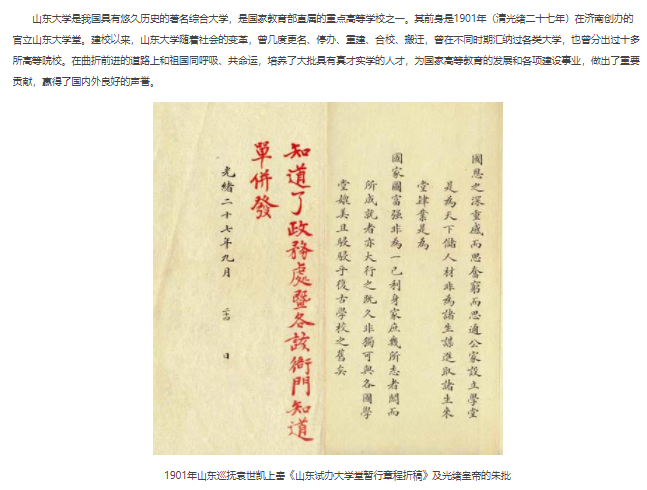 山东大学是我国具有悠久历史的著名综合大学，是国家教育部直属的重点高等学校之一。其前身是1901年（清光绪二十七年）在济南创办的
官立山东大学堂。建校以来，山东大学随着社会的变革，曾几度更名、停办、重建、合校、搬迁，曾在不同时期汇纳过各类大学，也曾分出过十多
所高等院校。在曲折前进的道路上和祖国同呼吸、共命运，培养了大批具有真才实学的人才，为国家高等教育的发展和各项建设事业，做出了重要
贡献，赢得了国内外良好的声誉。
國恩之深重感而思奮窮而思通公家設立學堂
是為天下儲人材非為諸生謀進取諸生來
堂肄業是為
國家圖富强非為一己利身家庶幾所志者閎而
所成就者亦大行之既久非獨可與各國學
堂媲美且駸駸乎復古學校之舊矣
知道了政務處暨各該衙門知道
單併發
光緒二十七年九月 日
1901年山东巡抚袁世凯上奏《山东试办大学堂暂行章程折稿》及光绪皇帝的朱批